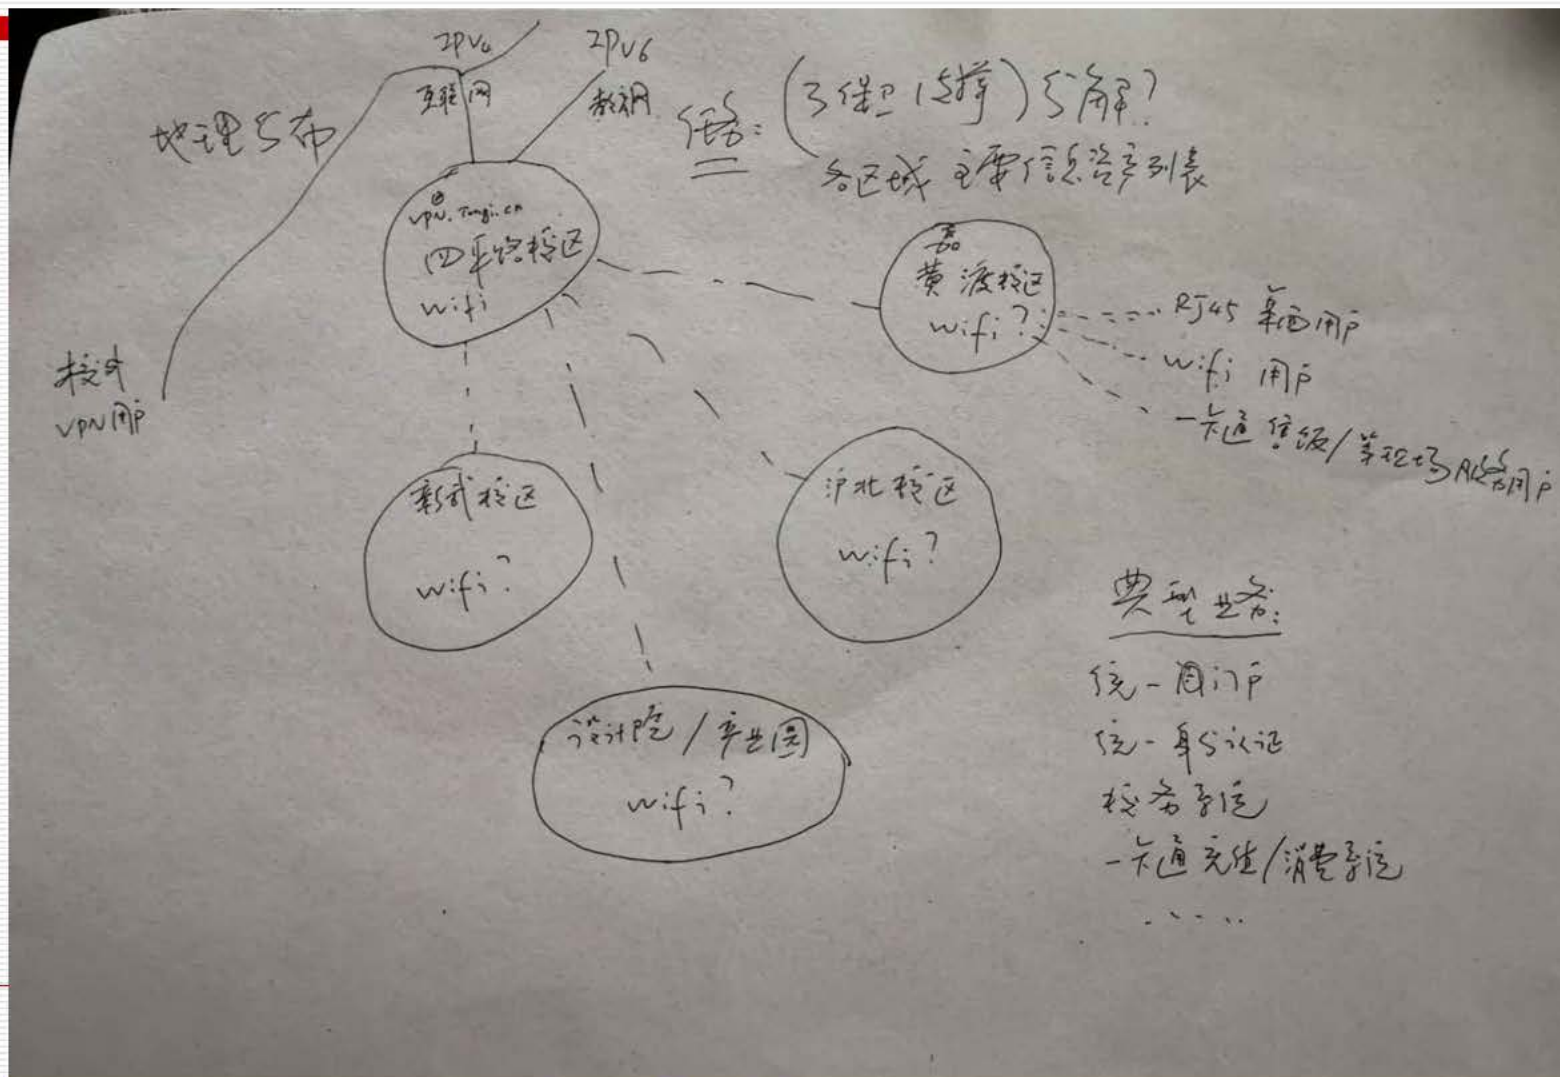 IPV4
互联网
IPV6
教育网
地理分布
任务: (3保卫1支撑) 分解?
各区域 主要信息资产列表
vpn.Tongji.cn
四平路校区
wifi
嘉
黄渡校区
wifi?
RJ45 桌面用户
wifi 用户
一卡通 售饭/等现场服务用户
校外
VPN用户
彰武校区
wifi?
沪北校区
wifi?
设计院/产业园
wifi?
典型业务:
统一门户
统一身份认证
校务系统
一卡通充值/消费系统
......